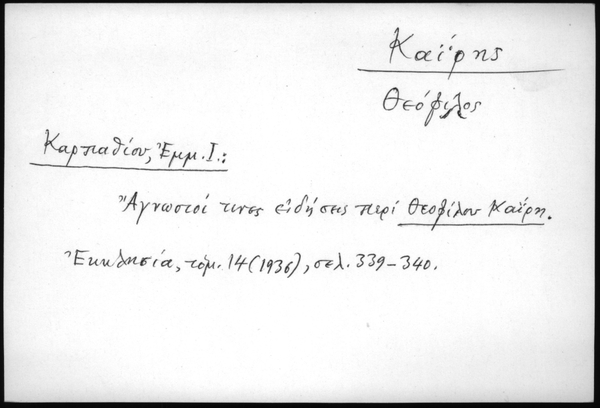 Καΐρης
Θεόφιλος
Καρπαθίου, Ἐμμ. Ι.:
Ἄγνωστοί τινες εἰδήσεις περί Θεοφίλου Καΐρη.
Ἐκκλησία, τόμ. 14 (1936), σελ. 339-340.